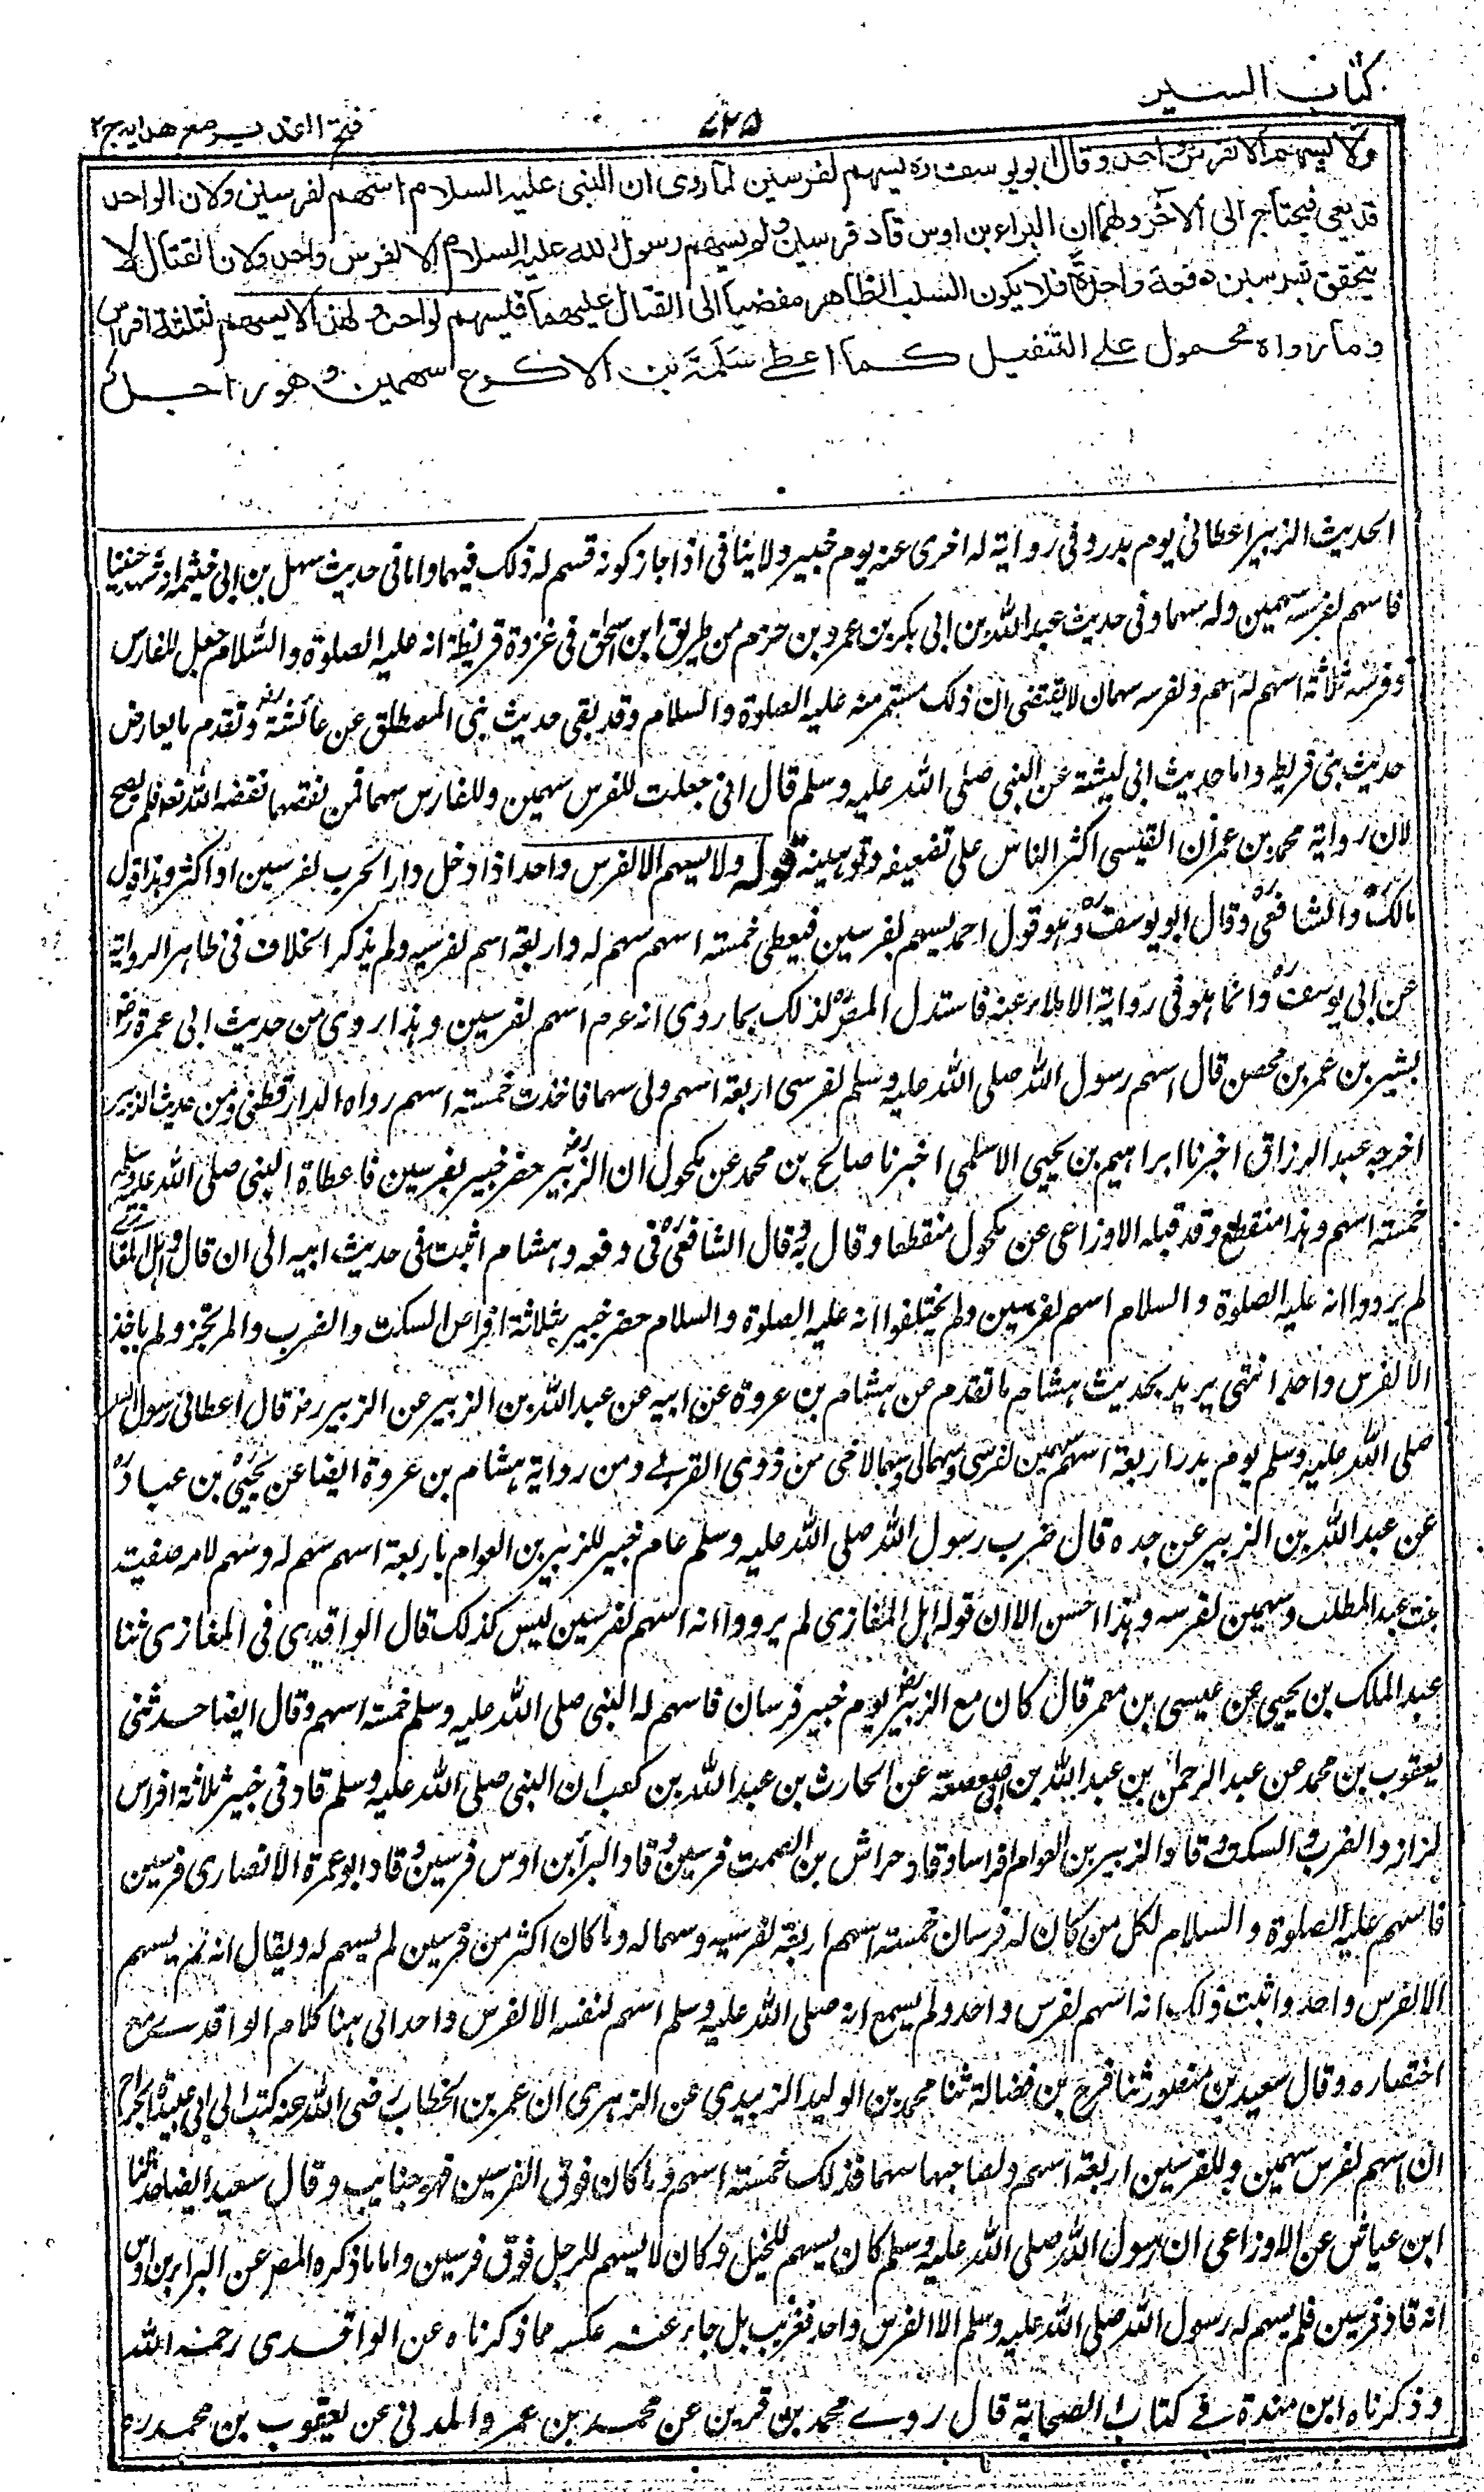 كتاب السير
٧٢٥
فتح القدير مع هدايه ج ٢
ولا يسهم الا لفرس واحد وقال ابو يوسف ره يسهم لفرسين لما روى ان النبى عليه السلام اسهم لفرسين ولان الواحد
قد يعى فيحتاج الى الاخر ولهما ان البراء بن اوس قاد فرسين ولم يسهم رسول الله عليه السلام الا لفرس واحد ولان القتال لا
يتحقق بفرسين دفعة واحدة فلا يكون السبب الظاهر مفضيا الى القتال عليهما فيسهم لواحد ولهذا لا يسهم لثلثة افراس
وما رواه محمول على التنفيل كما اعطى سلمة بن الاكوع سهمين وهو راجل
الحديث الزبير اعطانى يوم بدر وفى رواية له اخرى عنه يوم خيبر ولا ينافى اذا جاز كونه قسم له ذلك فيهما واما فى حديث سهل بن ابى خثمة انه شهد حنينا
فاسهم لفرسه سهمين وله سهما وفى حديث عبد الله بن ابى بكر بن عمرو بن حزم من طريق ابن اسحق فى غزوة قريظة انه عليه الصلوة والسلام جعل للفارس
وفرسه ثلاثة اسهم له سهم ولفرسه سهمان لا يقتضى ان ذلك مستمر منه عليه الصلوة والسلام وقد بقى حديث بنى المصطلق عن عائشة رض وتقدم ما يعارض
حديث بنى قريظه واما حديث ابى كبشة عن النبى صلى الله عليه وسلم قال انى جعلت للفرس سهمين وللفارس سهما فمن نقصهما نقصه الله تعه فلم يصح
لان رواية محمد بن عمران القيسى اكثر الناس على تضعيفه وتوهينه قوله ولا يسهم الا لفرس واحد اذا دخل دار الحرب بفرسين او اكثر وهذا قول
مالك والشافعى ره وقال ابو يوسف ره وهو قول احمد يسهم لفرسين فيعطى خمسة اسهم سهم له واربعة اسهم لفرسيه ولم يذكر الخلاف فى ظاهر الرواية
عن ابى يوسف ره وانما هو فى رواية الاملاء عنه فاستدل المصره لذلك بما روى انه عرم اسهم لفرسين وهذا روى من حديث ابى عمرة رض
بشير بن عمر بن محصن قال اسهم رسول الله صلى الله عليه وسلم لفرسى اربعة اسهم ولى سهما فاخذت خمسة اسهم رواه الدارقطنى ومن حديث الزبير
اخرجه عبد الرزاق اخبرنا ابراهيم بن يحيى الاسلمى اخبرنا صالح بن محمد عن مكحول ان الزبير رض حضر خيبر بفرسين فاعطاه النبى صلى الله عليه وسلم
خمسة اسهم وهذا منقطع وقد قبله الاوزاعى عن مكحول منقطعا وقال به قال الشافعى ره فى دفعه وهشام اثبت فى حديث ابيه الى ان قال واهل المغازى
لم يرووا انه عليه الصلوة والسلام اسهم لفرسين ولم يختلفوا انه عليه الصلوة والسلام حضر خيبر بثلاثة افراس السكت والضرب والمرتجز ولم ياخذ
الا لفرس واحد انتهى يريد بحديث هشام ما تقدم من هشام بن عروة عن ابيه عن عبد الله بن الزبير عن الزبير رض قال اعطانى رسول الله
صلى الله عليه وسلم يوم بدر اربعة اسهم سهمين لفرسى وسهما لى وسهما لامى من ذوى القربى ومن رواية هشام بن عروة ايضا عن يحيى بن عباد ره
عن عبد الله بن الزبير عن جده قال ضرب رسول الله صلى الله عليه وسلم عام خيبر للزبير بن العوام باربعة اسهم سهم له وسهم لامه صفية
بنت عبد المطلب وسهمين لفرسه وهذا احسن الا ان قوله اهل المغازى لم يرووا انه اسهم لفرسين ليس كذلك قال الواقدى فى المغازى ثنا
عبد الملك بن يحيى عن عيسى بن معمر قال كان مع الزبير رض يوم خيبر فرسان فاسهم له النبى صلى الله عليه وسلم خمسة اسهم وقال ايضا حدثنى
يعقوب بن محمد عن عبد الرحمن بن عبد الله بن ابى صعصعة عن الحارث بن عبد الله بن كعب ان النبى صلى الله عليه وسلم قاد فى خيبر ثلاثة افراس
لزاز والضرب والسكت وقاد الزبير بن العوام افراسا وقاد خراش بن الصمت فرسين وقاد البراء بن اوس فرسين وقاد ابو عمرة الانصارى فرسين
فاسهم عليه الصلوة والسلام لكل من كان له فرسان خمسة اسهم اربعة لفرسيه وسهما له وما كان اكثر من فرسين لم يسهم له ويقال انه لم يسهم
الا لفرس واحد واثبت ذلك انه اسهم لفرس واحد ولم يسمع انه صلى الله عليه وسلم اسهم لنفسه الا لفرس واحد الى هنا كلام الواقدى مع
اختصاره وقال سعيد بن منصور ثنا فرج بن فضالة ثنا محمد بن الوليد الزبيدى عن الزهرى ان عمر بن الخطاب رضى الله عنه كتب الى ابى عبيدة بن الجراح
ان اسهم لفرس سهمين وللفرسين اربعة اسهم ولصاحبهما سهما فذلك خمسة اسهم وما كان فوق الفرسين فهو جنايب وقال سعيد ايضا حدثنا
ابن عياش عن الاوزاعى ان رسول الله صلى الله عليه وسلم كان يسهم للخيل وكان لا يسهم للرجل فوق فرسين واما ما ذكره المصر عن البراء بن اوس
انه قاد فرسين فلم يسهم له رسول الله صلى الله عليه وسلم الا لفرس واحد فغريب بل جاء عنه عكسه مما ذكرناه عن الواقدى رحمه الله
وذكرناه ابن مندة فى كتاب الصحابة قال روى محمد بن قرين عن محمد بن عمر والمدنى عن يعقوب بن محمد ره